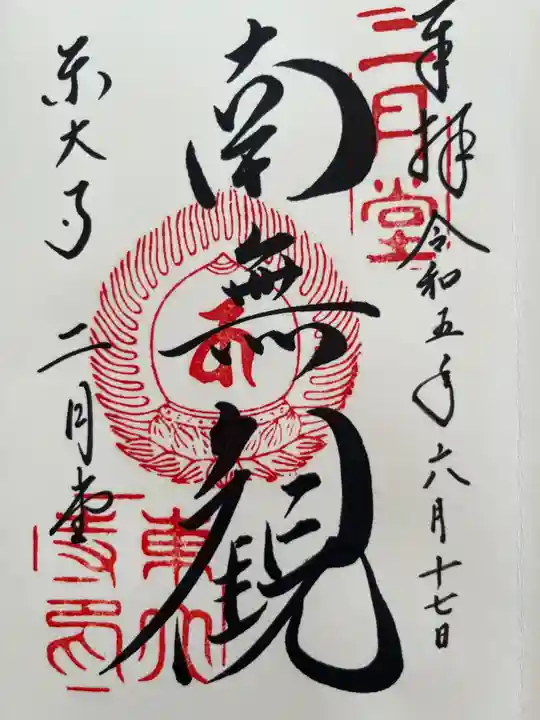 奉拝 令和五年六月十七日
二月堂
南無観
東大寺 二月堂
東大寺印